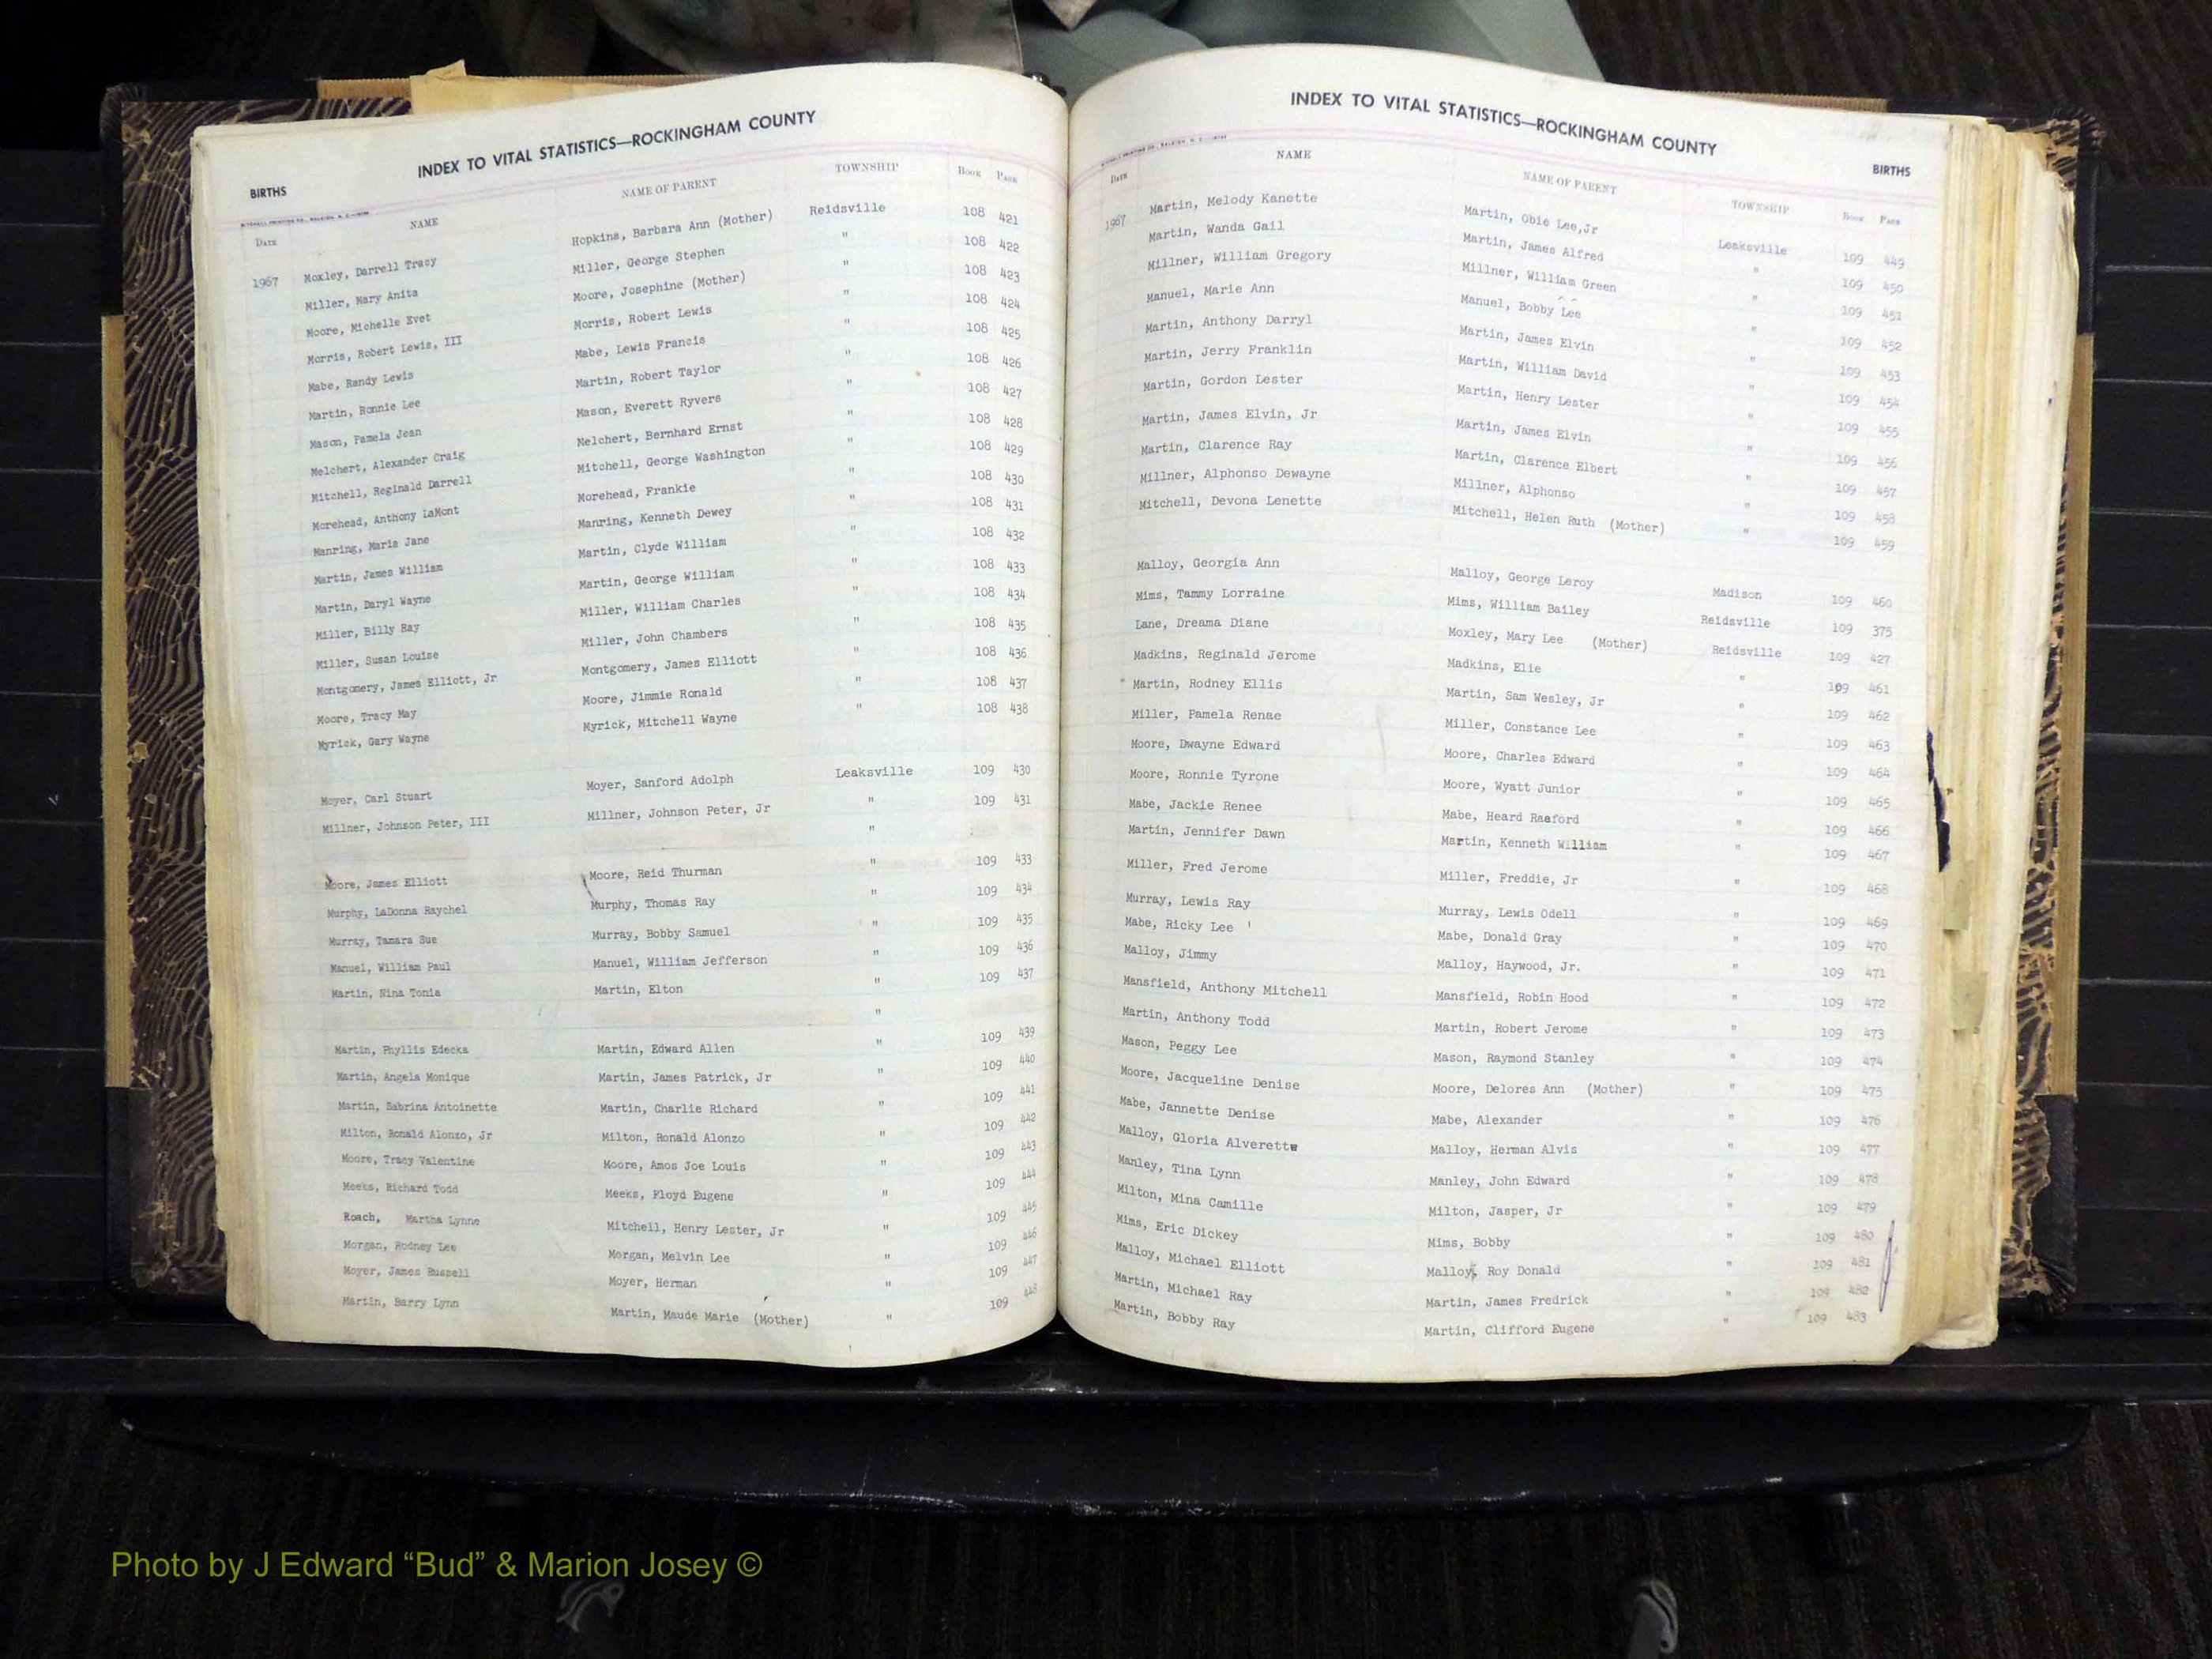 INDEX TO VITAL STATISTICS—ROCKINGHAM COUNTY
BIRTHS
DATE NAME NAME OF PARENT TOWNSHIP BOOK PAGE
1967 Moxley, Darrell Tracy Hopkins, Barbara Ann (Mother) Reidsville 108 421
Miller, Mary Anita Miller, George Stephen " 108 422
Moore, Michelle Evet Moore, Josephine (Mother) " 108 423
Morris, Robert Lewis, III Morris, Robert Lewis " 108 424
Mabe, Randy Lewis Mabe, Lewis Francis " 108 425
Martin, Ronnie Lee Martin, Robert Taylor " 108 426
Mason, Pamela Jean Mason, Everett Ryvers " 108 427
Melchert, Alexander Craig Melchert, Bernhard Ernst " 108 428
Mitchell, Reginald Darrell Mitchell, George Washington " 108 429
Morehead, Anthony LaMont Morehead, Frankie " 108 430
Manring, Maria Jane Manring, Kenneth Dewey " 108 431
Martin, James William Martin, Clyde William " 108 432
Martin, Daryl Wayne Martin, George William " 108 433
Miller, Billy Ray Miller, William Charles " 108 434
Miller, Susan Louise Miller, John Chambers " 108 435
Montgomery, James Elliott, Jr Montgomery, James Elliott " 108 436
Moore, Tracy May Moore, Jimmie Ronald " 108 437
Myrick, Gary Wayne Myrick, Mitchell Wayne " 108 438
Moyer, Carl Stuart Moyer, Sanford Adolph Leaksville 109 430
Millner, Johnson Peter, III Millner, Johnson Peter, Jr " 109 431
"
Moore, James Elliott Moore, Reid Thurman " 109 433
Murphy, LaDonna Raychel Murphy, Thomas Ray " 109 434
Murray, Tamara Sue Murray, Bobby Samuel " 109 435
Manuel, William Paul Manuel, William Jefferson " 109 436
Martin, Nina Tonia Martin, Elton " 109 437
"
Martin, Phyllis Edecka Martin, Edward Allen " 109 439
Martin, Angela Monique Martin, James Patrick, Jr " 109 440
Martin, Sabrina Antoinette Martin, Charlie Richard " 109 441
Milton, Ronald Alonzo, Jr Milton, Ronald Alonzo " 109 442
Moore, Tracy Valentine Moore, Amos Joe Louis " 109 443
Meeks, Richard Todd Meeks, Floyd Eugene " 109 444
Roach, Martha Lynne Mitchell, Henry Lester, Jr " 109 445
Morgan, Rodney Lee Morgan, Melvin Lee " 109 446
Moyer, James Russell Moyer, Herman " 109 447
Martin, Barry Lynn Martin, Maude Marie (Mother) " 109 448
INDEX TO VITAL STATISTICS—ROCKINGHAM COUNTY
BIRTHS
DATE NAME NAME OF PARENT TOWNSHIP BOOK PAGE
1967 Martin, Melody Kanette Martin, Obie Lee,Jr Leaksville 109 449
Martin, Wanda Gail Martin, James Alfred " 109 450
Millner, William Gregory Millner, William Green " 109 451
Manuel, Marie Ann Manuel, Bobby Lee " 109 452
Martin, Anthony Darryl Martin, James Elvin " 109 453
Martin, Jerry Franklin Martin, William David " 109 454
Martin, Gordon Lester Martin, Henry Lester " 109 455
Martin, James Elvin, Jr Martin, James Elvin " 109 456
Martin, Clarence Ray Martin, Clarence Elbert " 109 457
Millner, Alphonso Dewayne Millner, Alphonso " 109 458
Mitchell, Devona Lenette Mitchell, Helen Ruth (Mother) " 109 459
Malloy, Georgia Ann Malloy, George Leroy Madison 109 460
Mims, Tammy Lorraine Mims, William Bailey Reidsville 109 375
Lane, Dreama Diane Moxley, Mary Lee (Mother) Reidsville 109 427
Madkins, Reginald Jerome Madkins, Elie " 109 461
Martin, Rodney Ellis Martin, Sam Wesley, Jr " 109 462
Miller, Pamela Renae Miller, Constance Lee " 109 463
Moore, Dwayne Edward Moore, Charles Edward " 109 464
Moore, Ronnie Tyrone Moore, Wyatt Junior " 109 465
Mabe, Jackie Renee Mabe, Heard Raaford " 109 466
Martin, Jennifer Dawn Martin, Kenneth William " 109 467
Miller, Fred Jerome Miller, Freddie, Jr " 109 468
Murray, Lewis Ray Murray, Lewis Odell " 109 469
Mabe, Ricky Lee Mabe, Donald Gray " 109 470
Malloy, Jimmy Malloy, Haywood, Jr. " 109 471
Mansfield, Anthony Mitchell Mansfield, Robin Hood " 109 472
Martin, Anthony Todd Martin, Robert Jerome " 109 473
Mason, Peggy Lee Mason, Raymond Stanley " 109 474
Moore, Jacqueline Denise Moore, Delores Ann (Mother) " 109 475
Mabe, Jannette Denise Mabe, Alexander " 109 476
Malloy, Gloria Alverette Malloy, Herman Alvis " 109 477
Manley, Tina Lynn Manley, John Edward " 109 478
Milton, Mina Camille Milton, Jasper, Jr " 109 479
Mims, Eric Dickey Mims, Bobby " 109 480
Malloy, Michael Elliott Malloy, Roy Donald " 109 481
Martin, Michael Ray Martin, James Fredrick " 109 482
Martin, Bobby Ray Martin, Clifford Eugene " 109 483
Photo by J Edward “Bud” & Marion Josey ©